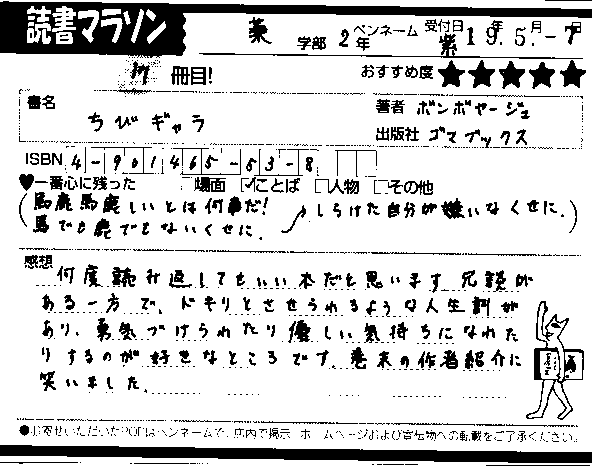 読書マラソン
薬 学部 2年 ペンネーム 紫 受付日 19年 5月 -7日
17 冊目! おすすめ度 ★★★★★
書名 ちびギャラ
著者 ボンボヤージュ
出版社 ゴマブックス
ISBN 4-901465-53-8
♥一番心に残った □場面 ☑ことば □人物 □その他
(馬鹿馬鹿しいとは何事だ!
馬でも鹿でもないくせに。
しらけた自分が嫌いなくせに。)
感想
何度読み返してもいい本だと思います。冗談が
ある一方で、ドキリとさせられるような人生訓が
あり、勇気づけられたり優しい気持ちになれた
りするのが好きなところです。巻末の作者紹介に
笑いました。
●お寄せいただいたPOPはペンネームで、店内で掲示、ホームページおよび宣伝物への転載をご了承ください。